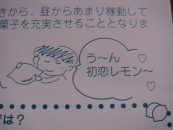 きから、昼からあまり稼動して
菓子を充実させることとなりま
う～ん
初恋レモン～
は？